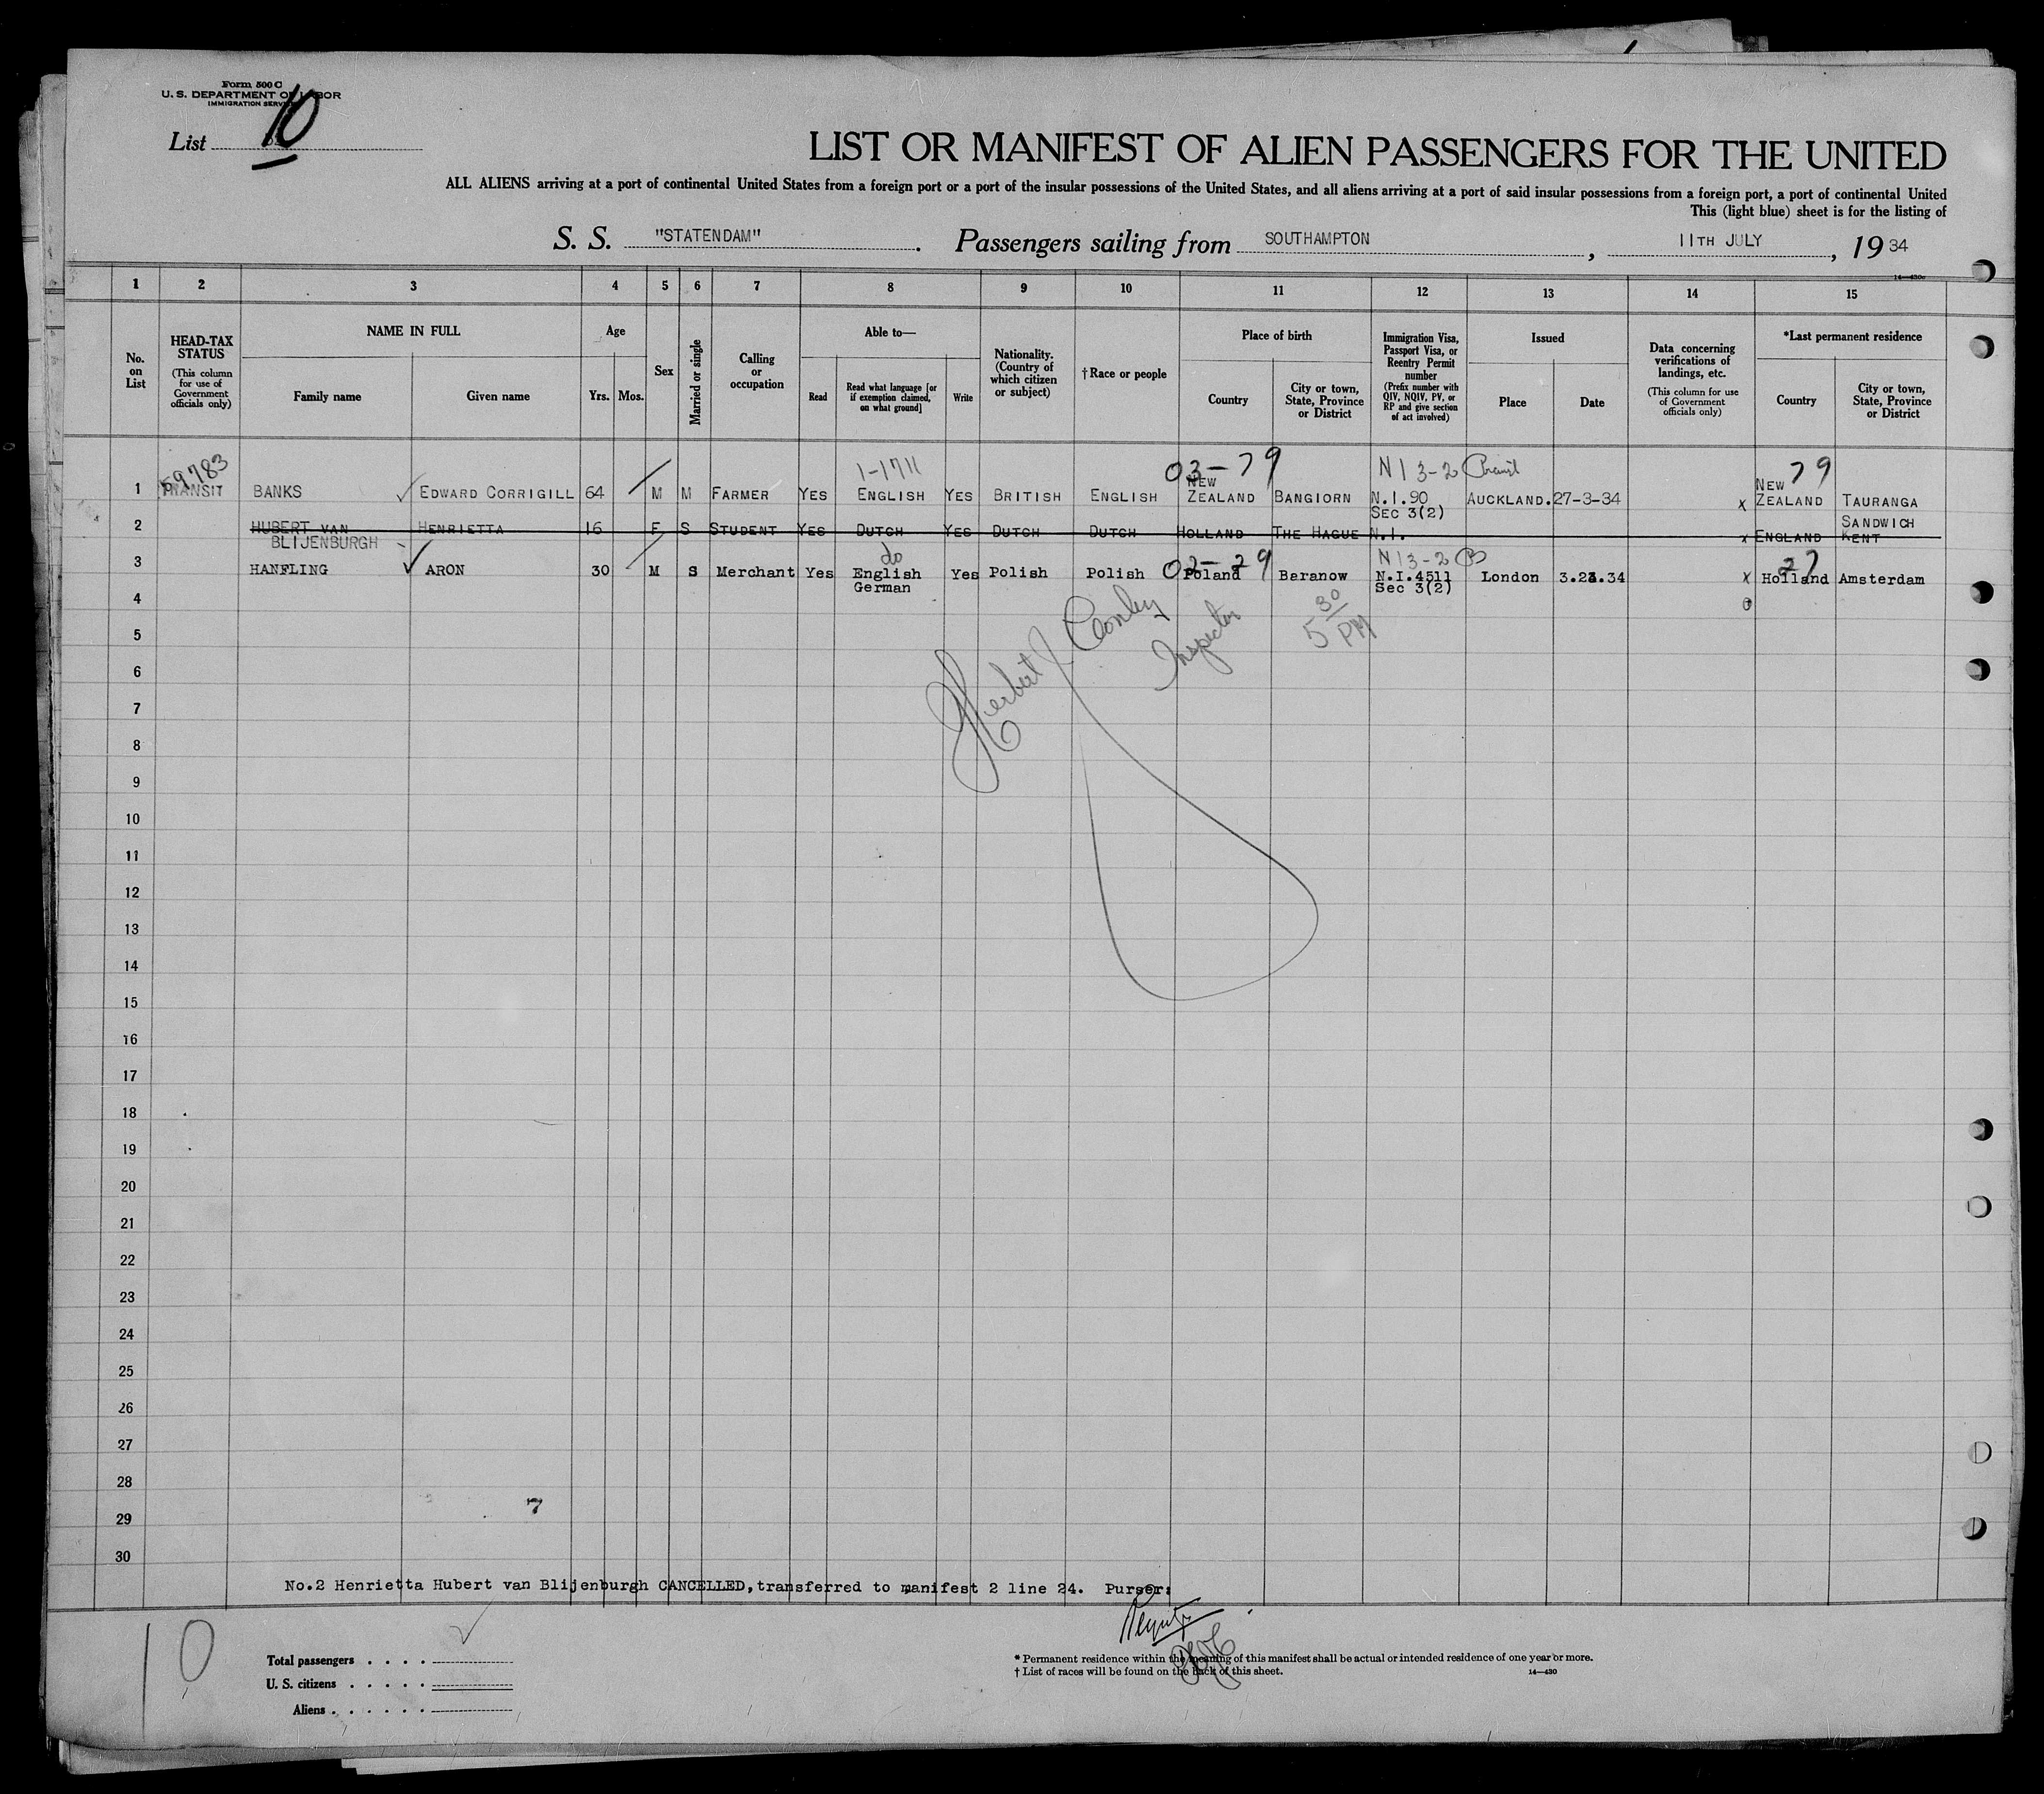 Form 500 C
U. S. DEPARTMENT OF LABOR
IMMIGRATION SERVICE
List 10
LIST OR MANIFEST OF ALIEN PASSENGERS FOR THE UNITED
ALL ALIENS arriving at a port of continental United States from a foreign port or a port of the insular possessions of the United States, and all aliens arriving at a port of said insular possessions from a foreign port, a port of continental United
This (light blue) sheet is for the listing of
S. S. "STATENDAM". Passengers sailing from SOUTHAMPTON, 11TH JULY, 1934
14—430c
1 2 3 4 5 6 7 8 9 10 11 12 13 14 15
No. on List
HEAD-TAX STATUS
(This column for use of Government officials only)
NAME IN FULL
Family name Given name
Age
Yrs. Mos.
Sex
Married or single
Calling or occupation
Able to—
Read Read what language [or if exemption claimed, on what ground] Write
Nationality. (Country of which citizen or subject)
†Race or people
Place of birth
Country City or town, State, Province or District
Immigration Visa, Passport Visa, or Reentry Permit number
(Prefix number with QIV, NQIV, PV, or RP and give section of act involved)
Issued
Place Date
Data concerning verifications of landings, etc.
(This column for use of Government officials only)
*Last permanent residence
Country City or town, State, Province or District
59783 1-1711 03-79 N I 3-2 Transit 79
1 TRANSIT BANKS EDWARD CORRIGILL 64 M M FARMER YES ENGLISH YES BRITISH ENGLISH NEW ZEALAND BANGIORN N.I.90 SEC 3(2) AUCKLAND. 27-3-34 x NEW ZEALAND TAURANGA
2 HUBERT VAN BLIJENBURGH HENRIETTA 16 F S STUDENT YES DUTCH YES DUTCH DUTCH HOLLAND THE HAGUE N.I. x ENGLAND SANDWICH KENT
do 02-29 N I 3-2 B 27
3 HANFLING ARON 30 M S Merchant Yes English German Yes Polish Polish Poland Beranow N.I.4511 Sec 3(2) London x Holland Amsterdam
4
Herbert J Conley
Inspector
5 30 PM
5
6
7
8
9
10
11
12
13
14
15
16
17
18
19
20
21
22
23
24
25
26
27
28
7
29
30
No.2 Henrietta Hubert van Blijenburgh CANCELLED, transferred to manifest 2 line 24. Purser:
10
Total passengers . . . .
U. S. citizens . . . . .
Aliens . . . . . .
* Permanent residence within the meaning of this manifest shall be actual or intended residence of one year or more.
† List of races will be found on the back of this sheet.
14—430